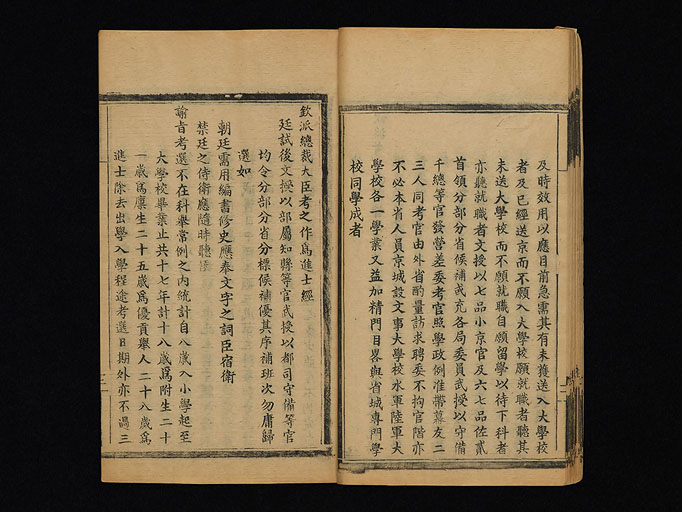 及時效用以應目前急需其有未獲送入大學校
者及已經送京而不願入大學校願就職者聽其
未送大學校而不願就職自願留學以待下科者
亦聽就職者文授以七品小京官及六七品佐貳
首領分部分省候補或充各局委員武授以守備
千總等官發營差委考官照學政例准帶幕友二
三人同考官由外省酌量訪求聘委不拘官階亦
不必本省人員京城設文事大學校水軍陸軍大
學校各一學業又益加精門目畧與省城專門學
校同學成者
欽派總裁大臣考之作為進士經
廷試後文授以部屬知縣等官武授以都司守備等官
均令分部分省分標候補優其序補班次勿庸歸
選如
朝廷需用編書修史應奉文字之詞臣宿衛
禁廷之侍衛應隨時聽候
諭旨考選不在科舉常例之內統計自八歲入小學起至
大學校畢業止共十七年計十八歲為附生二十
一歲為廩生二十五歲為優貢舉人二十八歲為
進士除去出學入學程途考選日期外亦不過三